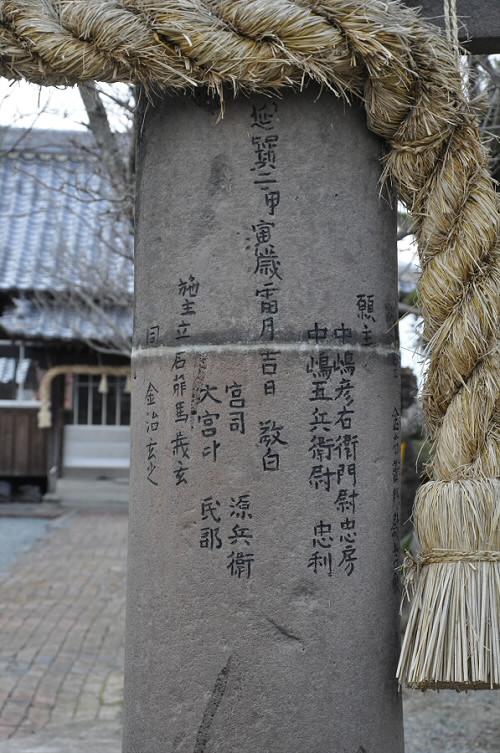 願主
中嶋彦右衛門尉忠房
中嶋五兵衛尉 忠利
延寳二甲寅歳霜月吉日 敬白
宮司 源兵衛
大宮司 民部
施主立石
同 金治玄之